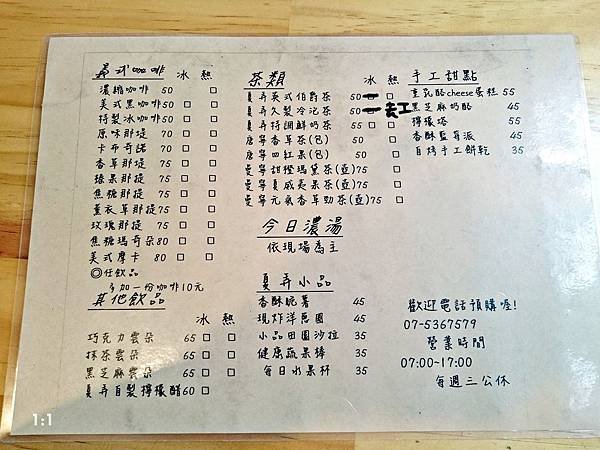 義式咖啡 冰 熱
濃縮咖啡 50 □
美式黑咖啡 50 □ □
特製冰咖啡 50 □ □
原味那堤 70 □ □
卡布奇諾 70 □ □
香草那堤 75 □ □
榛果那提 75 □ □
焦糖那提 75 □ □
薰衣草那提 75 □ □
玫瑰那提 75 □ □
焦糖瑪奇朵 80 □ □
美式摩卡 80 □ □
◎任飲品
多加一份咖啡10元
其他飲品
冰 熱
巧克力雲朵 65 □ □
抹茶雲朵 65 □ □
黑芝麻雲朵 65 □ □
夏弄自製檸檬醋 60 □ □
茶類 冰 熱
夏弄英式伯爵茶 50 □
夏弄久製冷泡茶 50 去工
夏弄特調鮮奶茶 55 □ □
唐寧香草茶(包) 50 □
唐寧四紅果(包) 50 □
曼寧甜橙瑪黛茶(壺) 75 □
曼寧夏威夷果茶(壺) 75 □
曼寧元氣香草勁茶(壺) 75 □
今日濃湯
依現場為主
夏弄小品
香酥脆薯 45
現炸洋蔥圈 45
小品田園沙拉 35
健康蔬果棒 35
每日水果杯 35
手工甜點
重乳酪cheese蛋糕 55
黑芝麻奶酪 45
檸檬塔 55
香酥藍莓派 45
自烤手工餅乾 35
歡迎電話預購喔!
07-5367579
營業時間
07:00-17:00
每週三公休
1:1